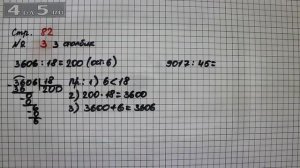 4 ДА 5 RU
Стр. 82
№ 3 3 столбик
3606 : 18 = 200 (ост. 6)
9017 : 45 =
3606 | 18
36 | 200
0
0
6
0
6
Пр: 1) 6 < 18
2) 200 · 18 = 3600
3) 3600 + 6 = 3606